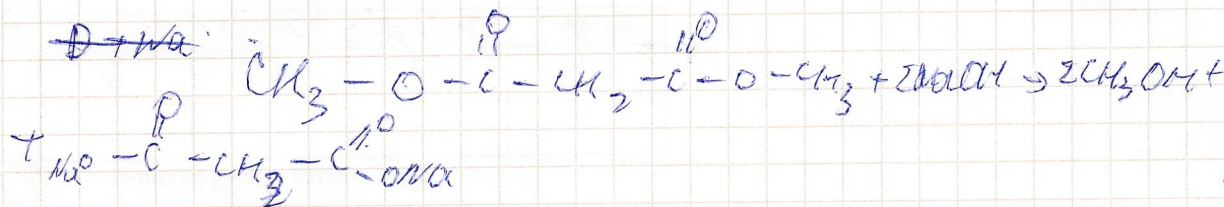 D + Na
O O
CH3 – O – C – CH2 – C – O – CH3 + 2NaOH → 2CH3OH +
O
+ NaO – C – CH2 – C O ONa